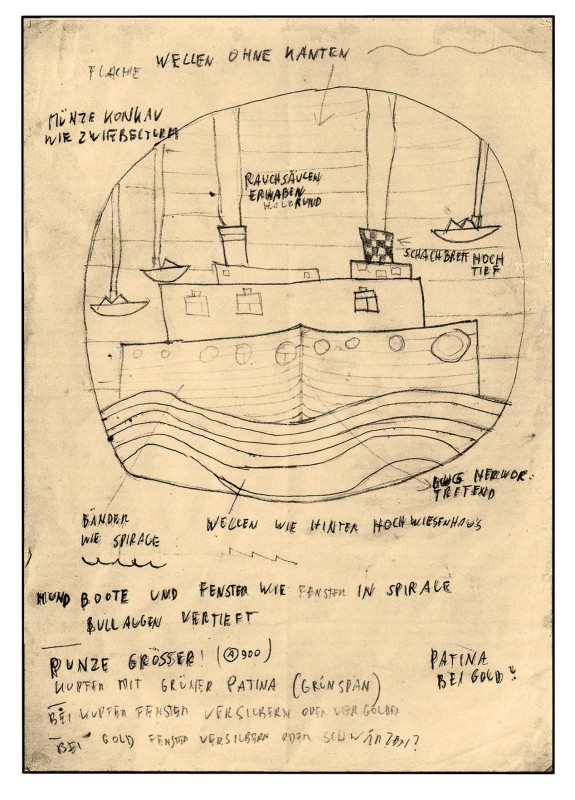 FLACHE WELLEN OHNE KANTEN
MÜNZE KONKAV
WIE ZWIEBELTURM
RAUCHSÄULEN
ERHABEN
HALBRUND
SCHACHBRETT HOCH
TIEF
BUG HERVOR-
TRETEND
BÄNDER
WIE SPIRALE
WELLEN WIE HINTER HOCHWIESENHAUS
BOOTE UND FENSTER WIE FENSTER IN SPIRALE
BULLAUGEN VERTIEFT
PUNZE GRÖSSER! (Ⓐ900)
KUPFER MIT GRÜNER PATINA (GRÜNSPAN)
PATINA
BEI GOLD?
BEI KUPFER FENSTER VERSILBERN ODER VERGOLDEN
BEI GOLD FENSTER VERSILBERN ODER SCHWÄRZEN?